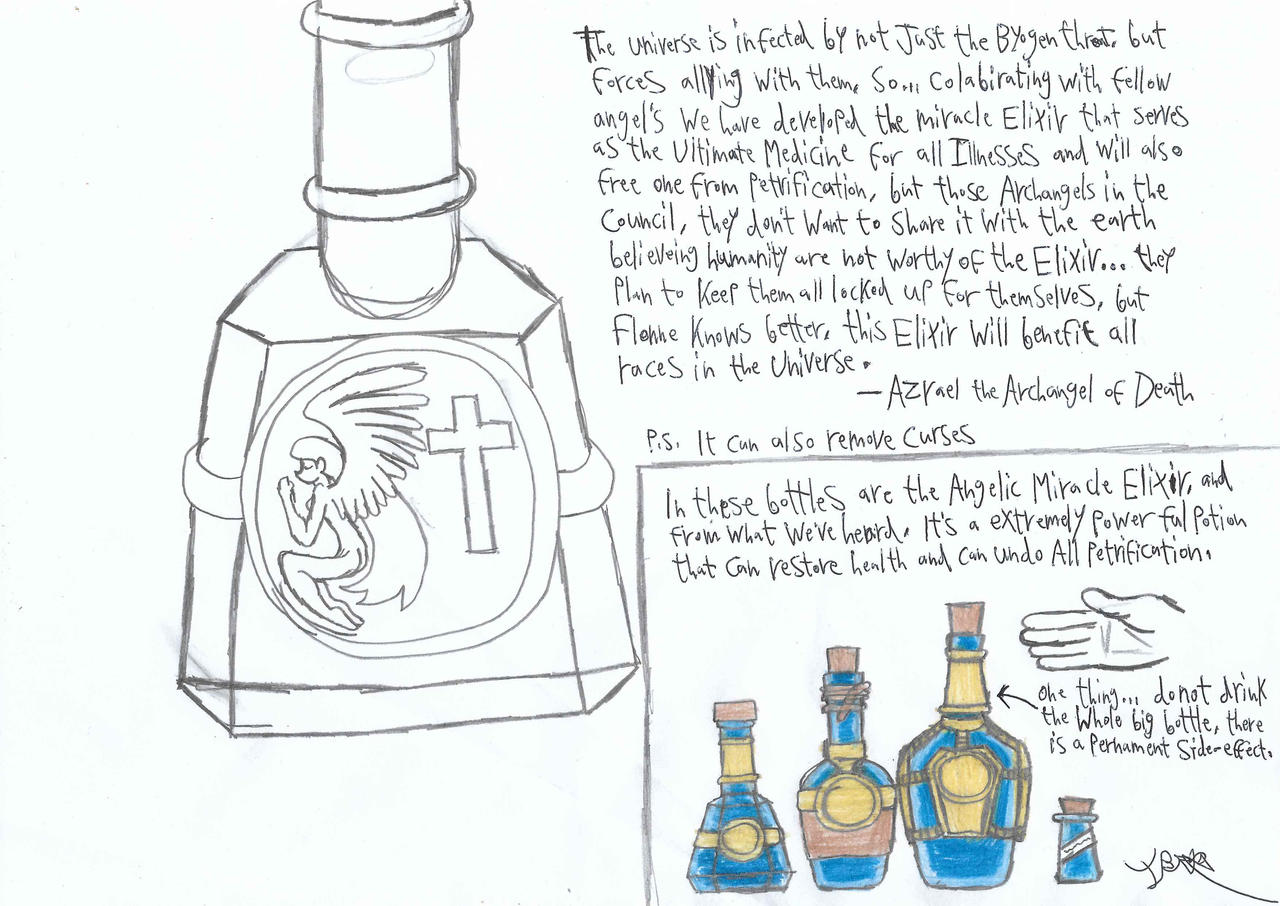 The universe is infected by not Just the Byogen threat. but
forces allying with them. So... colabirating with fellow
angel's We have developed the miracle Elixir that serves
as the Ultimate Medicine for all Illnesses and will also
free one from Petrification, but those Archangels in the
Council, they don't Want to share it with the earth
believeing humanity are not worthy of the Elixir... they
Plan to Keep them all locked up for themselves, but
Flonne Knows better. this Elixir will benefit all
races in the Universe.
— Azrael the Archangel of Death
P.S. It can also remove Curses
In these bottles are the Angelic Miracle Elixir, and
from what We've heard. It's a extremely powerful Potion
that can restore health and can undo All Petrification.
one thing... do not drink
the Whole big bottle, there
is a Perhament Side-effect.